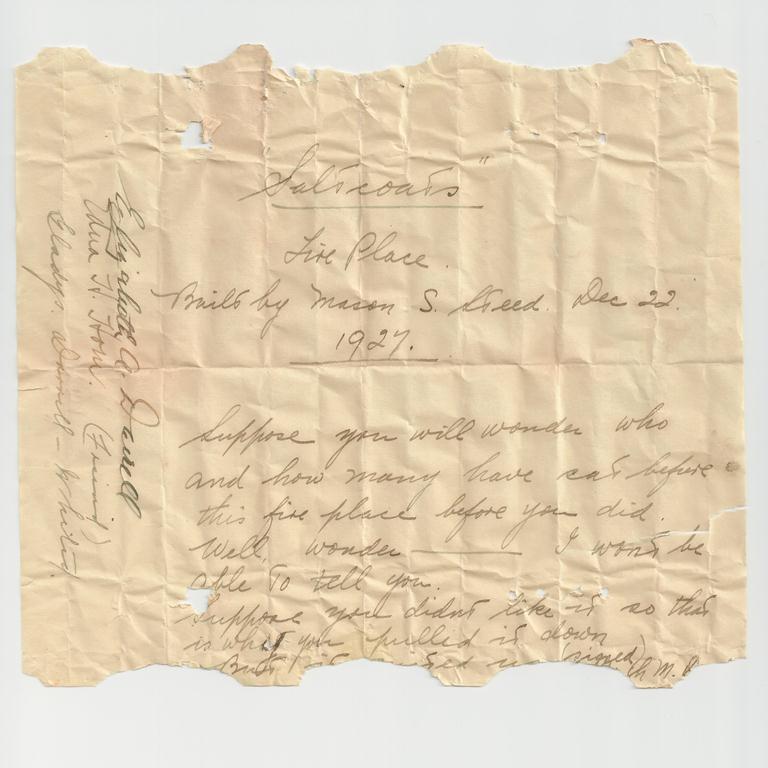 "Saltcoats"
Fire Place.
Built by Mason S. Steed. Dec 22.
1927.
Suppose you will wonder who
and how many have sat before
this fire place before you did.
Well, wonder — I wont be
able to tell you.
Suppose you didnt like it so that
is why you pulled it down
But it (signed)
M.
Elizabeth A. Darrell
Edna H. Hom. (Friend)
Gladys. Darrell - Whited